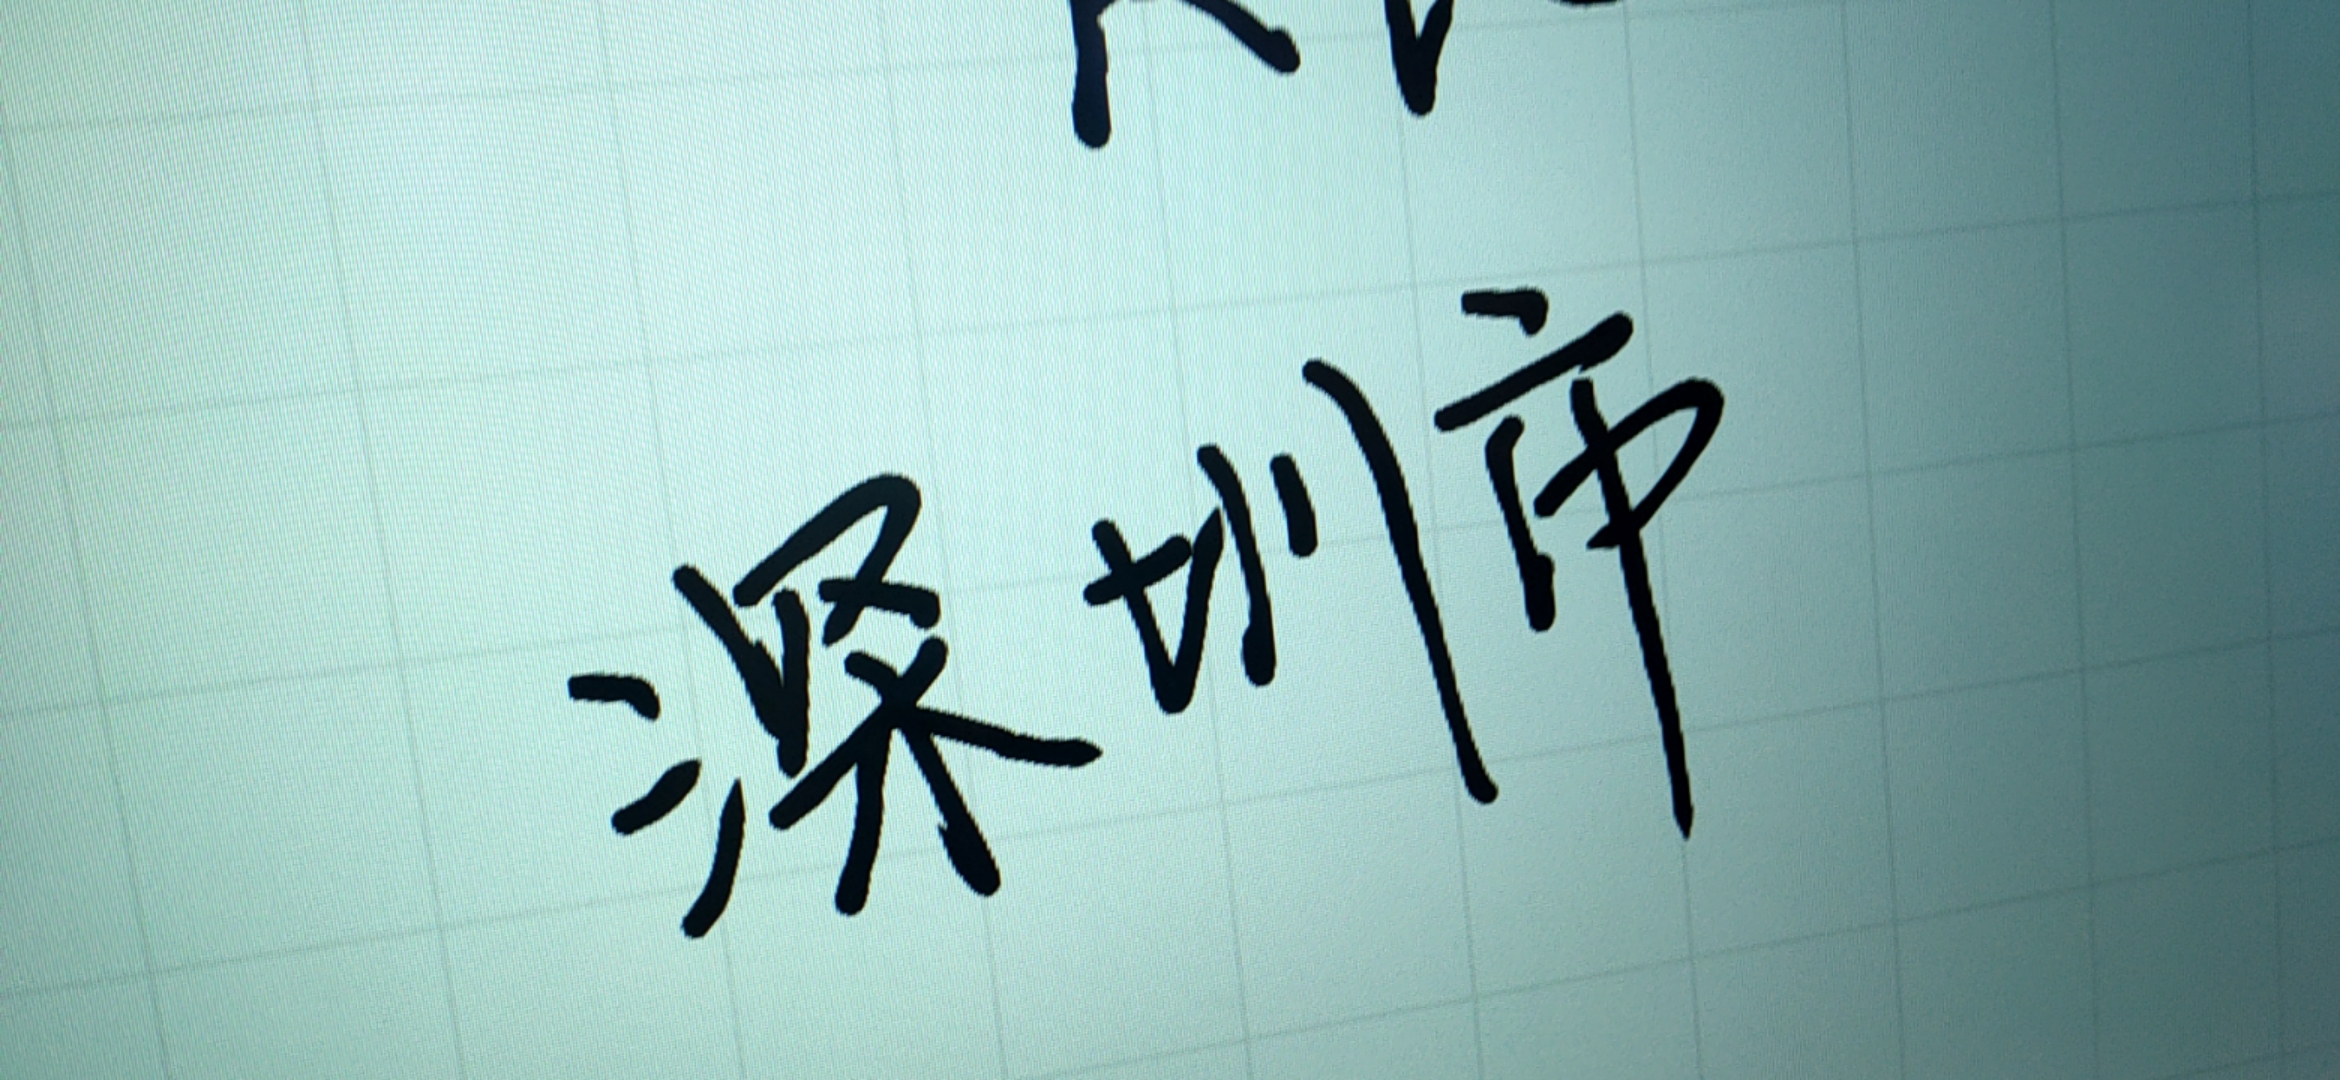 深圳市